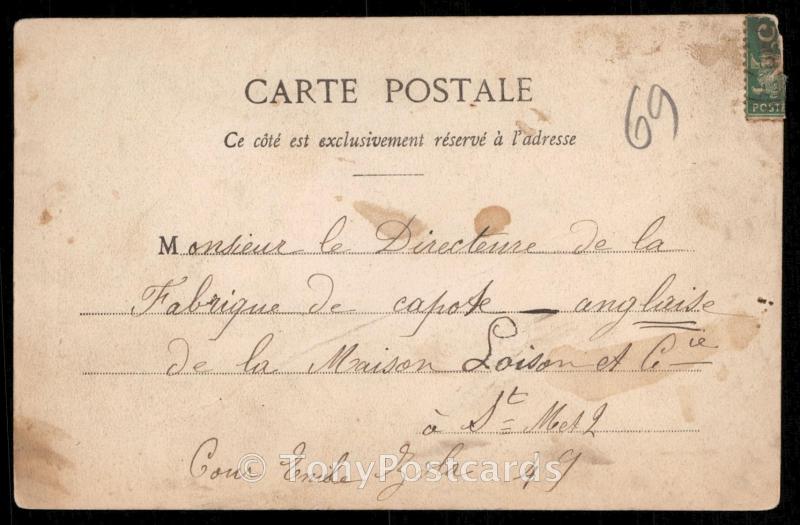 CARTE POSTALE
69
POSTE
Ce côté est exclusivement réservé à l'adresse
Monsieur le Directeure de la
Fabrique de capote - anglaise
de la Maison Loison et Cie
à St Met2
Cour
© TonyPostcards